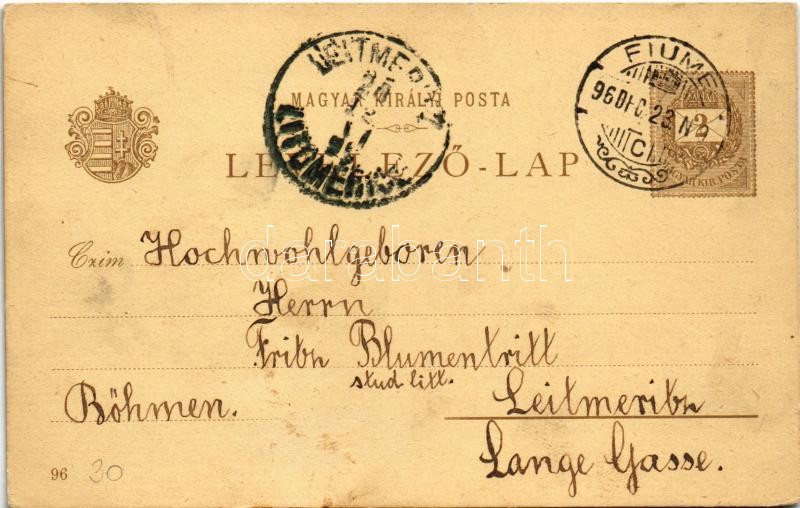 LEITMERITZ
LITOMĚŘICE
FIUME
96 DEC. 23. N 2
MAGYAR KIRÁLYI POSTA
LEVELEZŐ-LAP
2
MAGYAR KIR. POSTA
Czim Hochwohlgeboren
Herrn
Fritz Blumentritt
stud litt.
Böhmen. Leitmeritz
Lange Gasse.
96 30
darabanth